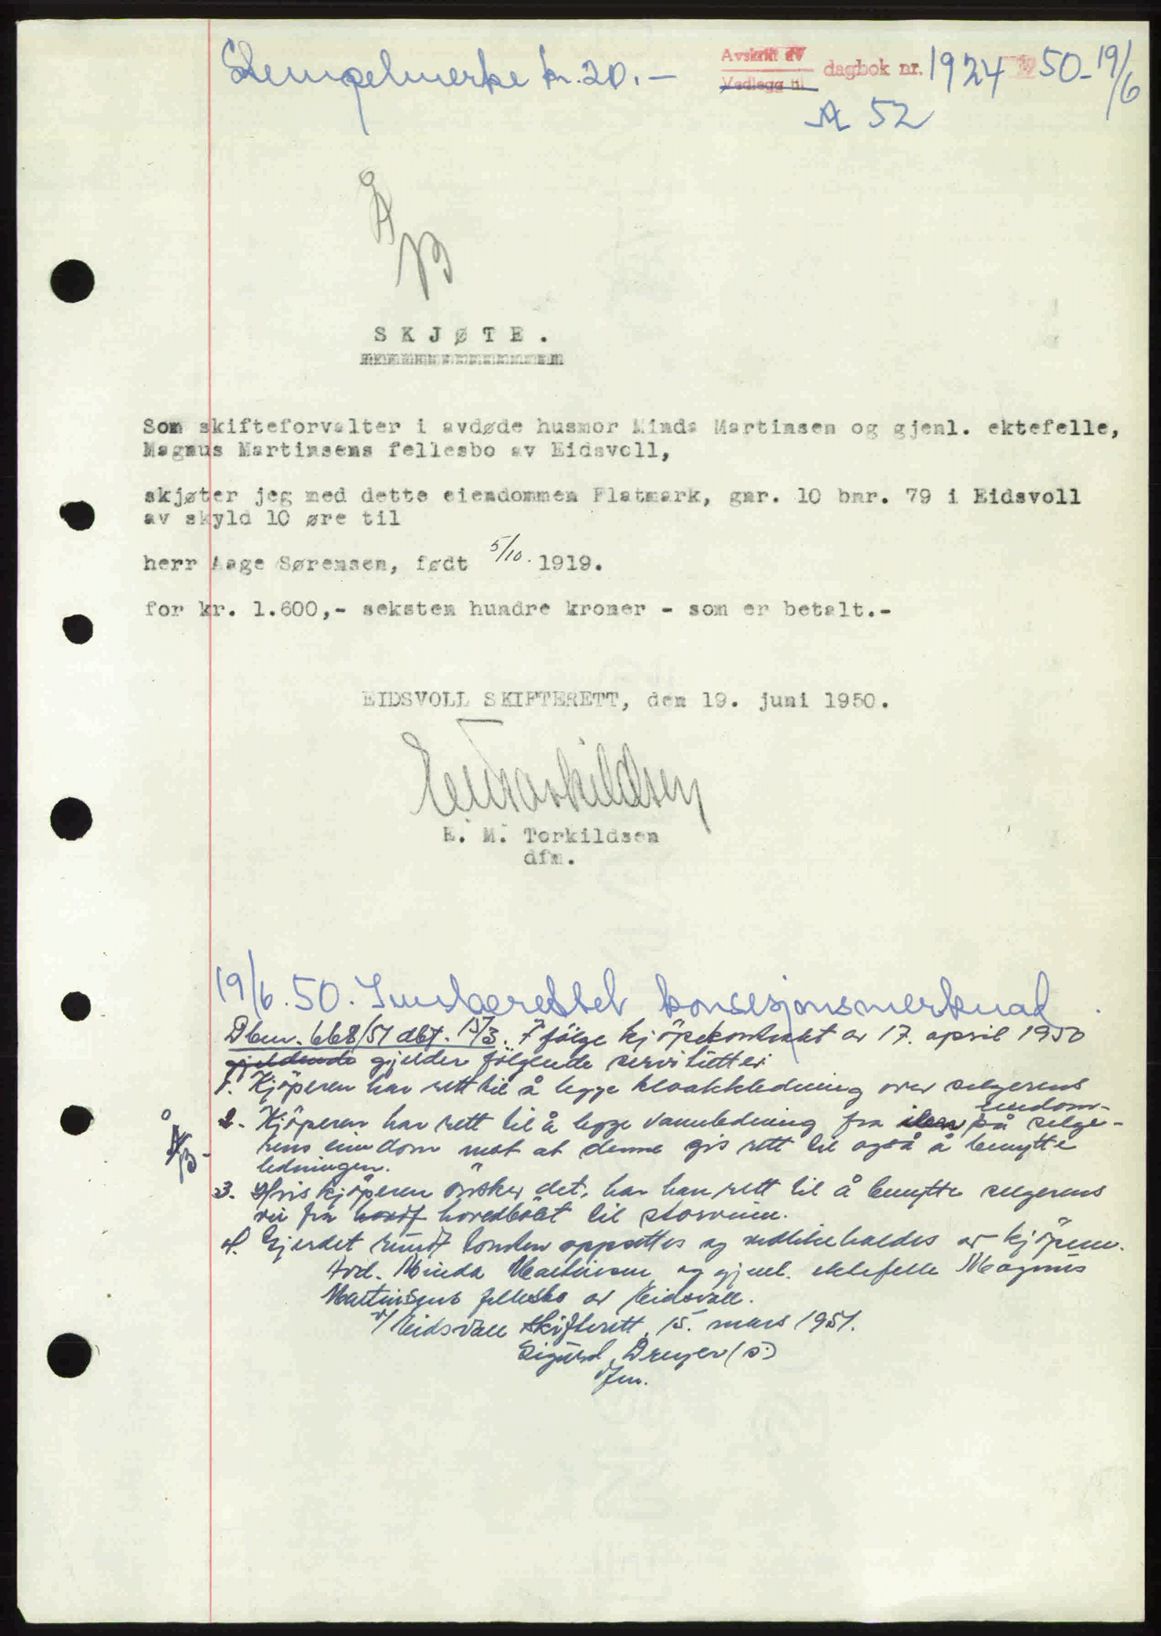 Stempelmerke kr. 20.-
Avskrift av
Vedlegg til
dagbok nr. 1924 19 50 - 19/6
A 52
Å
B
SKJØTE.
Som skifteforvalter i avdøde husmor Minda Martinsen og gjenl. ektefelle,
Magnus Martinsens fellesbo av Eidsvoll,
skjøter jeg med dette eiendommen Flatmark, gnr. 10 bnr. 79 i Eidsvoll
av skyld 10 øre til
herr Aage Sørensen, født 5/10. 1919.
for kr. 1.600,- seksten hundre kroner - som er betalt.-
EIDSVOLL SKIFTERETT, den 19. juni 1950.
E. M. Torkildsen
E. M. Torkildsen
dfm.
19/6.50. Innberettet konsesjonsmerknad.
Dbnr. 668/51 dbf. 15/3. I følge kjøpekontrakt av 17. april 1950
gjeldende gjelder følgende servitutter
1. Kjøperen har rett til å legge kloakkledning over selgerens
eiendom.
2. Kjøperen har rett til å legge vannledning fra på selge-
rens eiendom mot at denne gis rett til også å benytte
ledningen.
Å/B.
3. Hvis kjøperen ønsker det, har han rett til å benytte selgerens
vei fra hovedbølet til storveien.
4. Gjerdet rundt tomten oppsettes og vedlikeholdes av kjøperen.
Avd. Minda Martinsen og gjenl. ektefelle Magnus
Martinsens fellesbo av Eidsvoll.
v/ Eidsvoll skifterett, 15. mars 1951.
Sigurd Dreyer (s.)
fm.